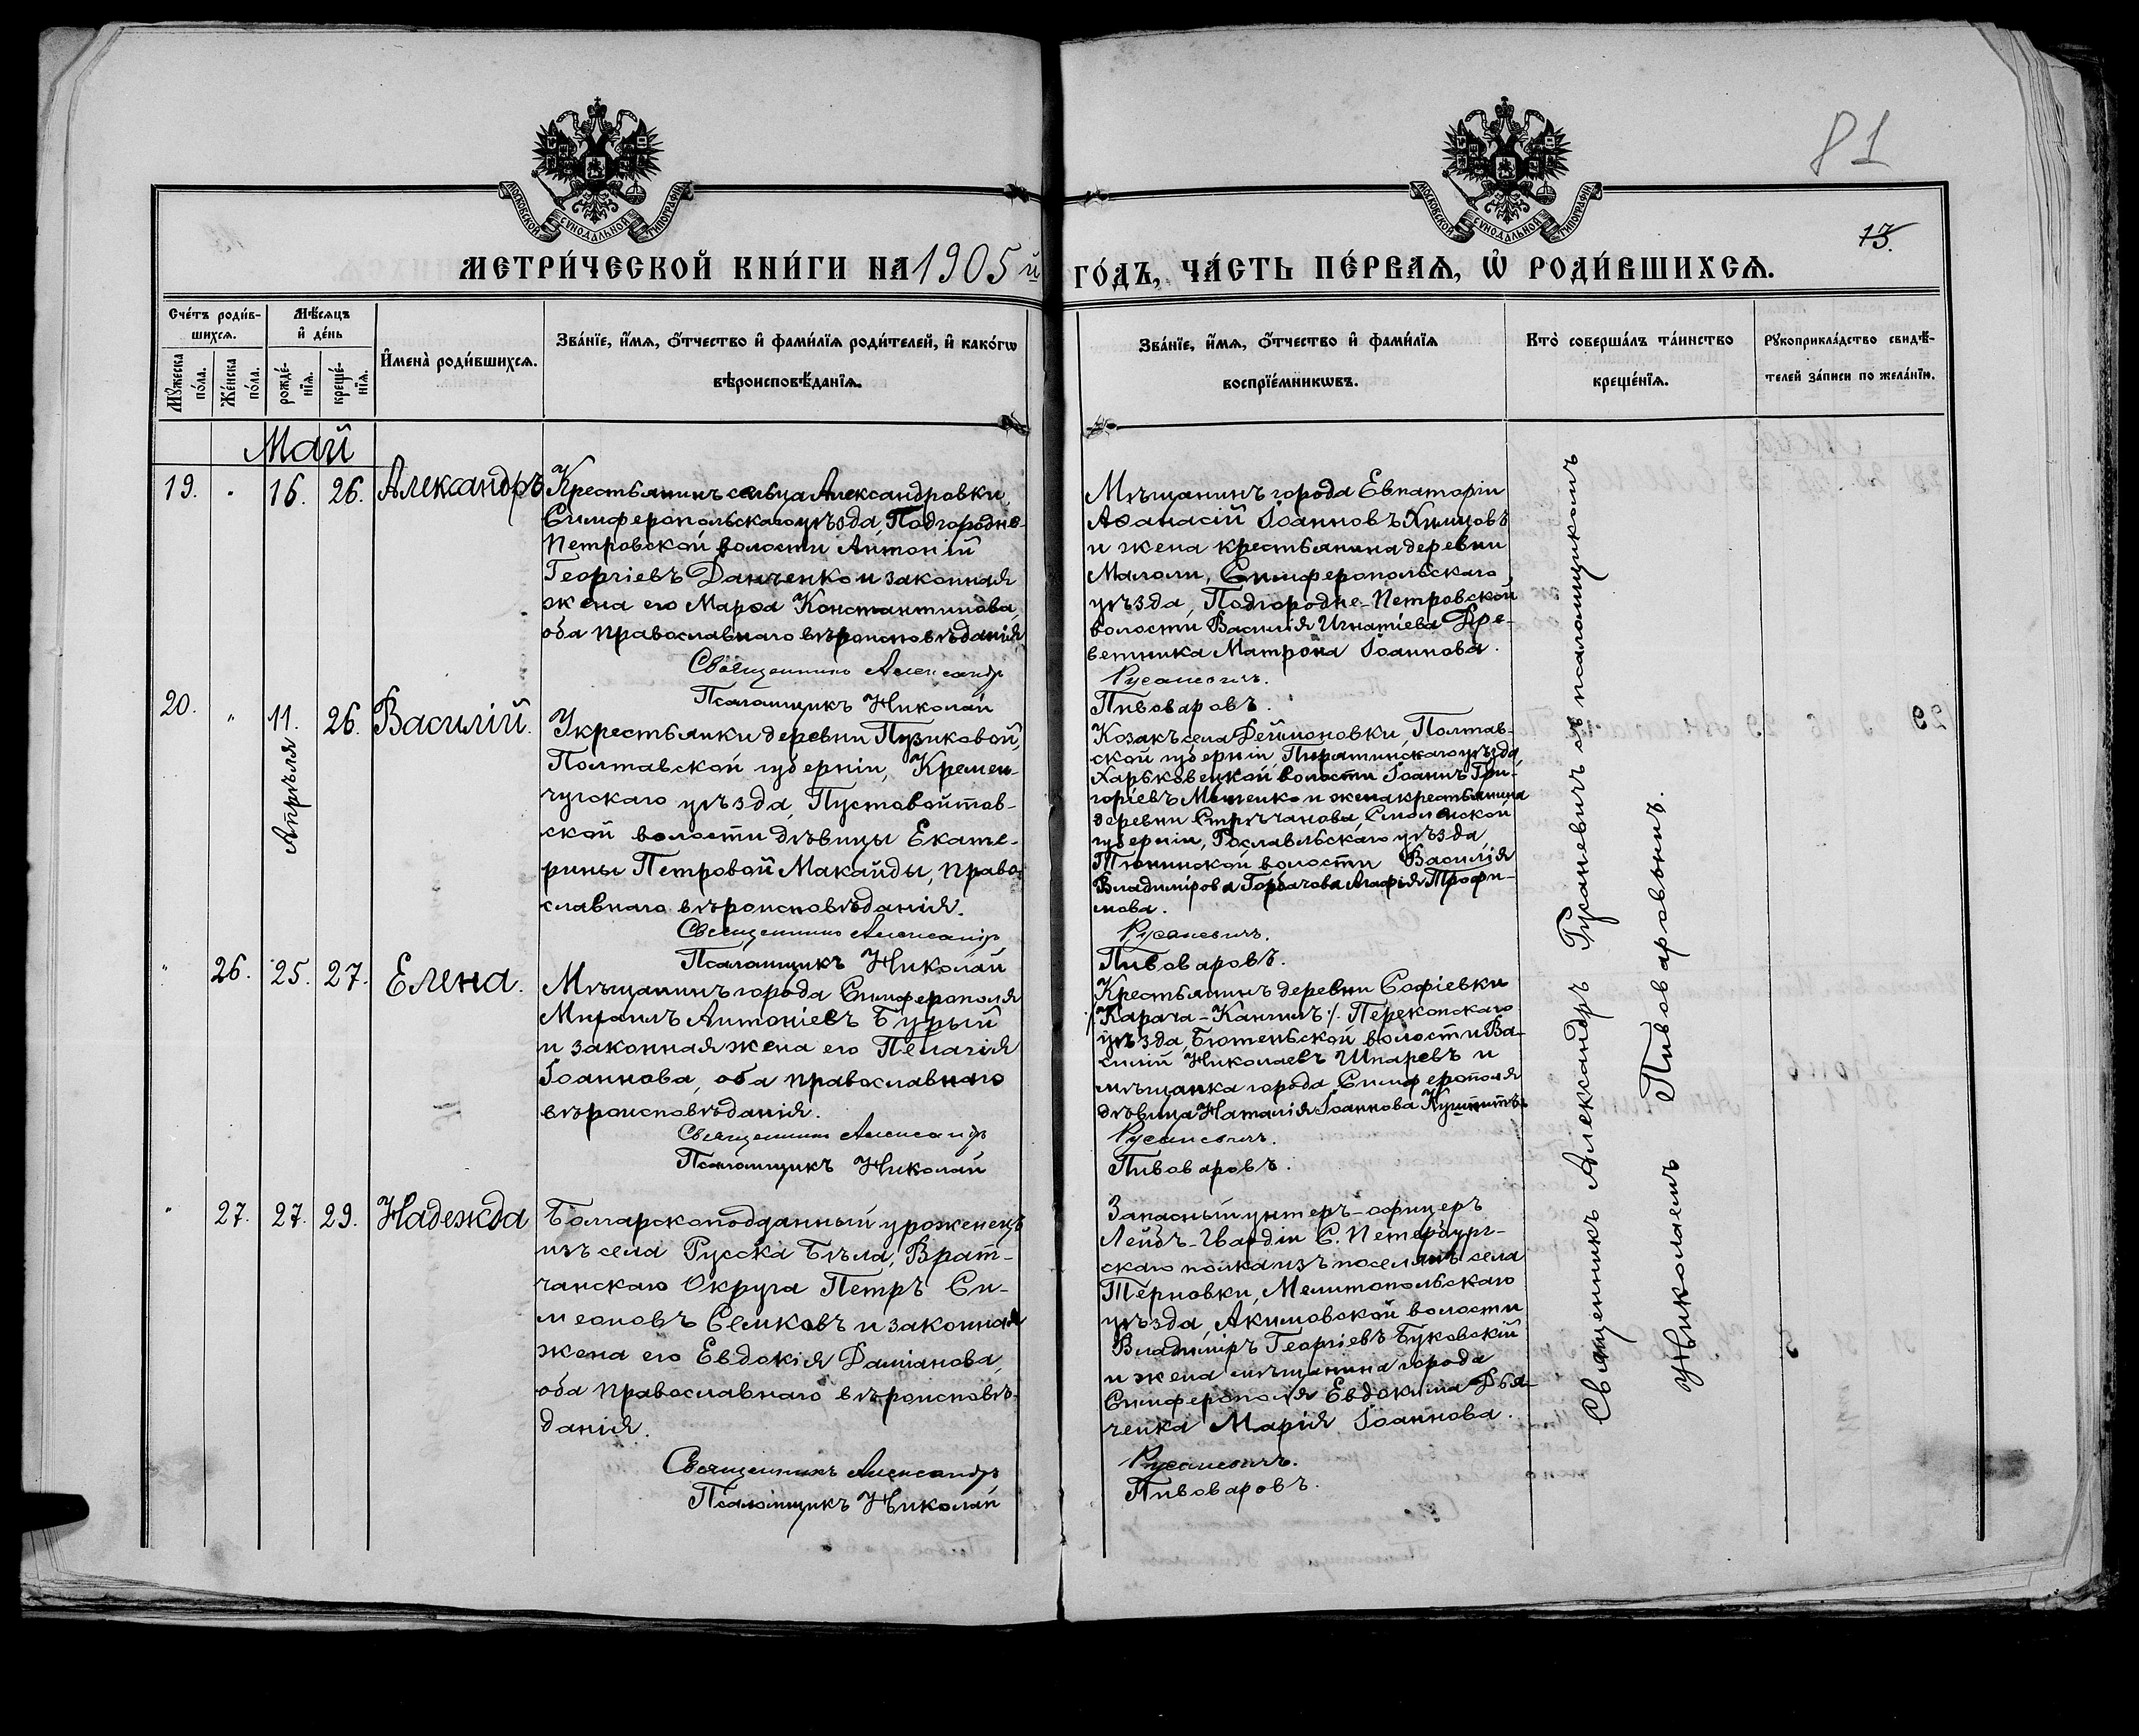 81
13.
МОСКОВСКОЙ СУНОДАЛЬНОЙ ТИПОГРАФІИ
МОСКОВСКОЙ СУНОДАЛЬНОЙ ТИПОГРАФІИ
МЕТРИ́ЧЕСКОЙ КНИ́ГИ НА 1905 й ГО́ДЪ, ЧА́СТЬ ПЕ́РВАѦ, Ѡ҆ РОДИ́ВШИХСѦ.
Сче́тъ роди́в-
шихсѧ.
Мѣ́сѧцъ
и҆ де́нь
Мꙋ́жеска
по́ла.
Же́нска
по́ла.
рожде́-
нїѧ.
креще́-
нїѧ.
И҆мена̀ роди́вшихсѧ.
Зва́нїе, и҆́мѧ, ѻ҆́тчество и҆ фами́лїѧ роди́телей, и҆ како́гѡ
вѣроисповѣ́данїѧ.
Зва́нїе, и҆́мѧ, ѻ҆́тчество и҆ фами́лїѧ
воспрїе́мникѡвъ.
Кто̀ соверша́лъ та́инство
креще́нїѧ.
Рꙋкоприкла́дство свидѣ́-
телей за́писи по жела́нїю.
Май
19. " 16. 26. Александръ
Крестьянинъ сельца Александровки,
Симферопольскаго уѣзда, Подгородне-
Петровской волости Антоній
Георгіевъ Данченко и законная
жена его Марѳа Константинова,
оба православнаго вѣроисповѣданія
Священникъ Александр
Псаломщикъ Николай
Мѣщанинъ города Евпаторіи
Аѳанасій Іоанновъ Химцовъ
и жена крестьянина деревни
Мазоли, Симферопольскаго
уѣзда, Подгородне-Петровской
волости Василія Игнатіева Дре-
ветника Матрона Іоаннова.
Русаневичъ.
Пивоваровъ.
20. " 11. Апрѣля 26. Василій.
У крестьянки деревни Пузиковой,
Полтавской губерніи, Кремен-
чугскаго уѣзда, Пустовойтов-
ской волости дѣвицы Екате-
рины Петровой Макайды, право-
славнаго вѣроисповѣданія.
Священникъ Александр
Псаломщикъ Николай
Козакъ села Деймановки, Полтав-
ской губерніи, Пирятинскаго уѣзда,
Харьковецкой волости Іоаннъ Гри-
горіевъ и жена крестьянина
деревни Смоленской
губерніи, Рославльскаго уѣзда,
волости Василія
Владимірова Горбачова Агафія Трофи-
мова.
Русаневичъ.
Пивоваровъ.
" 26. 25. 27. Елена.
Мѣщанинъ города Симферополя
Михаилъ Антоніевъ Бурый
и законная жена его Пелагія
Іоаннова, оба православнаго
вѣроисповѣданія.
Священникъ Александр
Псаломщикъ Николай
Крестьянинъ деревни Софіевки
/Карача-Кангилъ/. Перекопскаго
уѣзда, Бютеньской волости Ва-
силій Николаевъ Шпаревъ и
мѣщанка города Симферополя
дѣвица Наталія Іоаннова
Русаневичъ.
Пивоваровъ.
" 27. 27. 29. Надежда
Болгарскоподданный уроженецъ
изъ села Русска Бѣла, Врат-
чанскаго Округа Петръ Си-
меоновъ Семковъ и законная
жена его Евдокія Даміанова,
оба православнаго вѣроисповѣ-
данія.
Священникъ Александр
Псаломщикъ Николай
Запасный унтеръ-офицеръ
Лейбъ-Гвардіи С. Петербург-
скаго полка изъ поселянъ села
Терновки, Мелитопольскаго
уѣзда, Акимовской волости
Владиміръ Георгіевъ Буковскій
и жена мѣщанина города
Симферополя Евдокима Дья-
ченка Марія Іоаннова.
Русаневичъ.
Пивоваровъ.
Священникъ Александръ Русаневичъ съ псаломщикомъ
Николаемъ Пивоваровымъ.